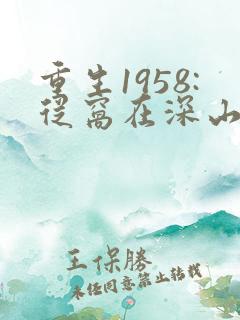 重生1958:
从窝在深山
王保勝
未经同意禁止转载